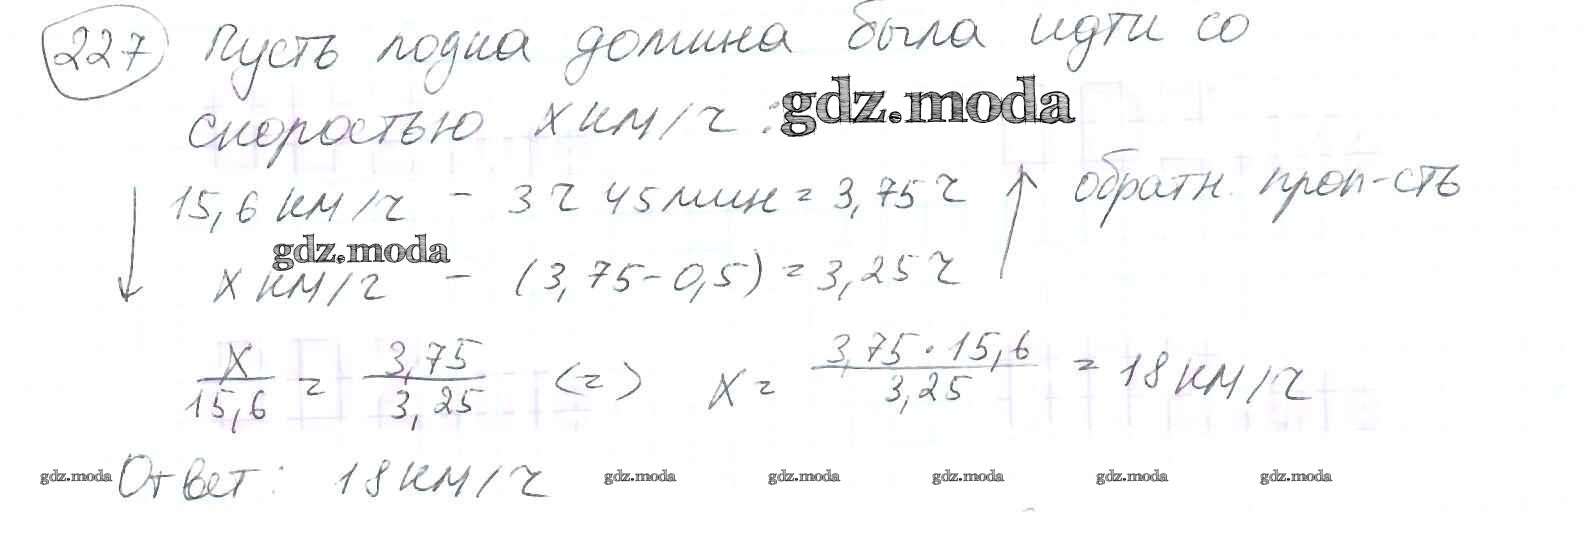 227 Пусть лодка должна была идти со
скоростью x км/ч: gdz.moda
15,6 км/ч – 3 ч 45 мин = 3,75 ч обратн. проп-сть
gdz.moda
x км/ч – (3,75-0,5) = 3,25 ч
x/15,6 = 3,75/3,25 <=> x = 3,75·15,6/3,25 = 18 км/ч
gdz.moda Ответ: 18 км/ч gdz.moda gdz.moda gdz.moda gdz.moda gdz.moda